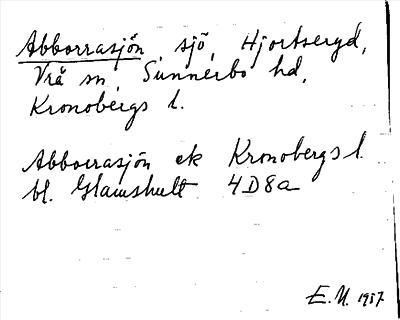 Abborrasjön, sjö, Hjortseryd,
Vrå sn, Sunnerbo hd,
Kronobergs l.
Abborrasjön ek Kronobergs l.
bl. Glamshult 4D8a
E.U. 1957